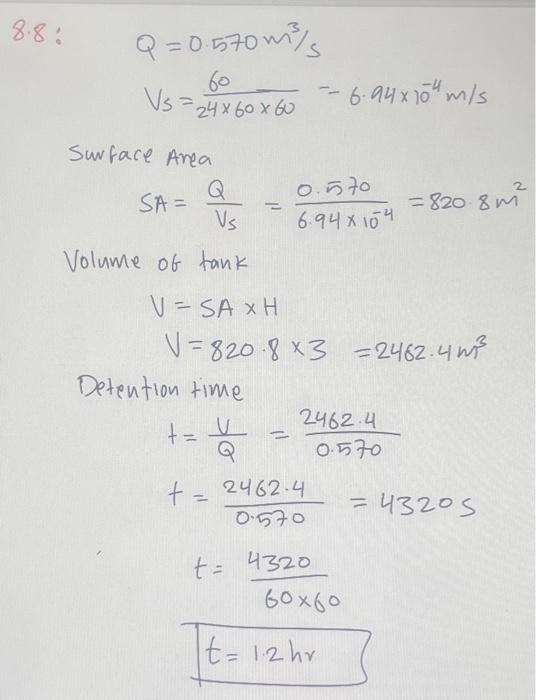 8.8:
Q = 0.570 m³/s
Vs = 60 / 24 × 60 × 60 = 6.94 × 10⁻⁴ m/s
Surface Area
SA = Q / Vs = 0.570 / 6.94 × 10⁻⁴ = 820.8 m²
Volume of tank
V = SA × H
V = 820.8 × 3 = 2462.4 m³
Detention time
t = V / Q = 2462.4 / 0.570
t = 2462.4 / 0.570 = 4320 s
t = 4320 / 60 × 60
t = 1.2 hr